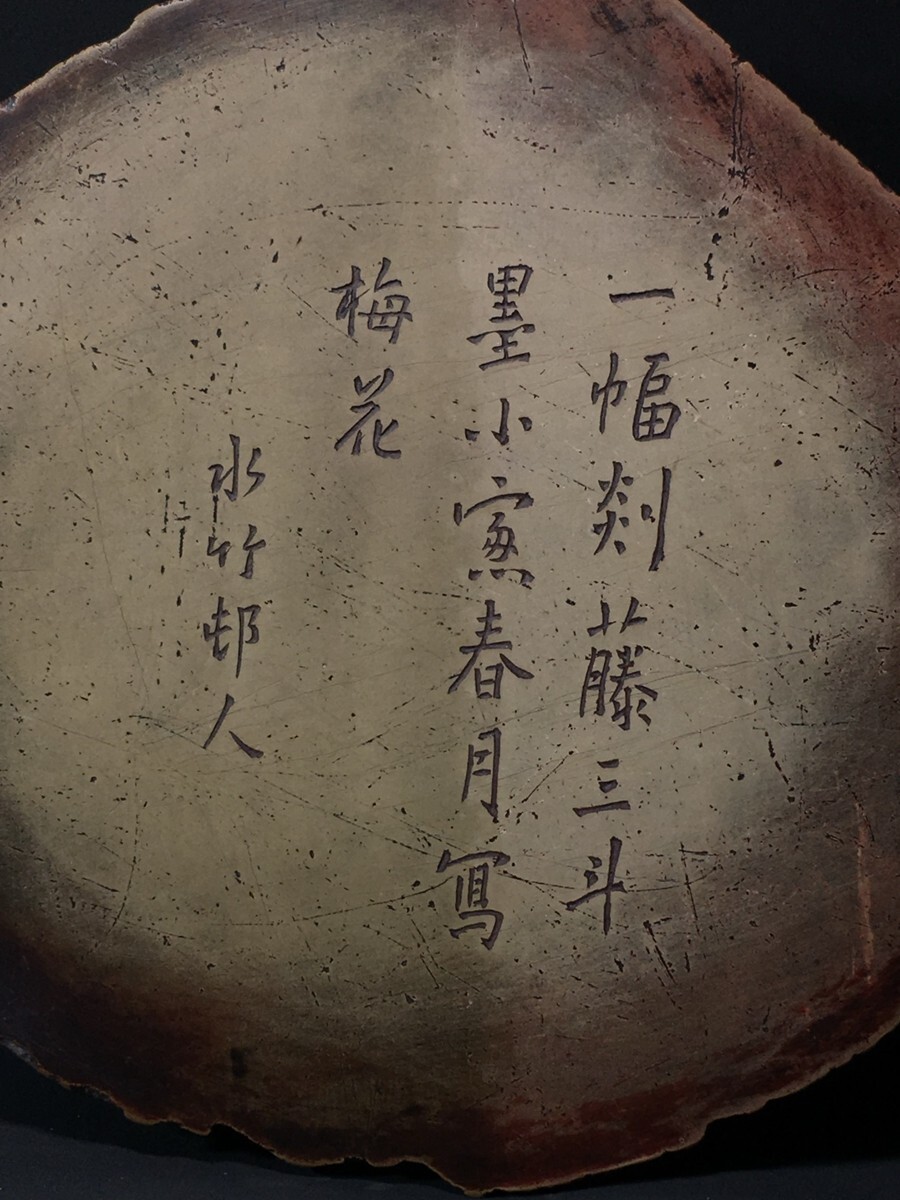 一幅剡藤三斗
墨小窻春月寫
梅花
水竹邨人